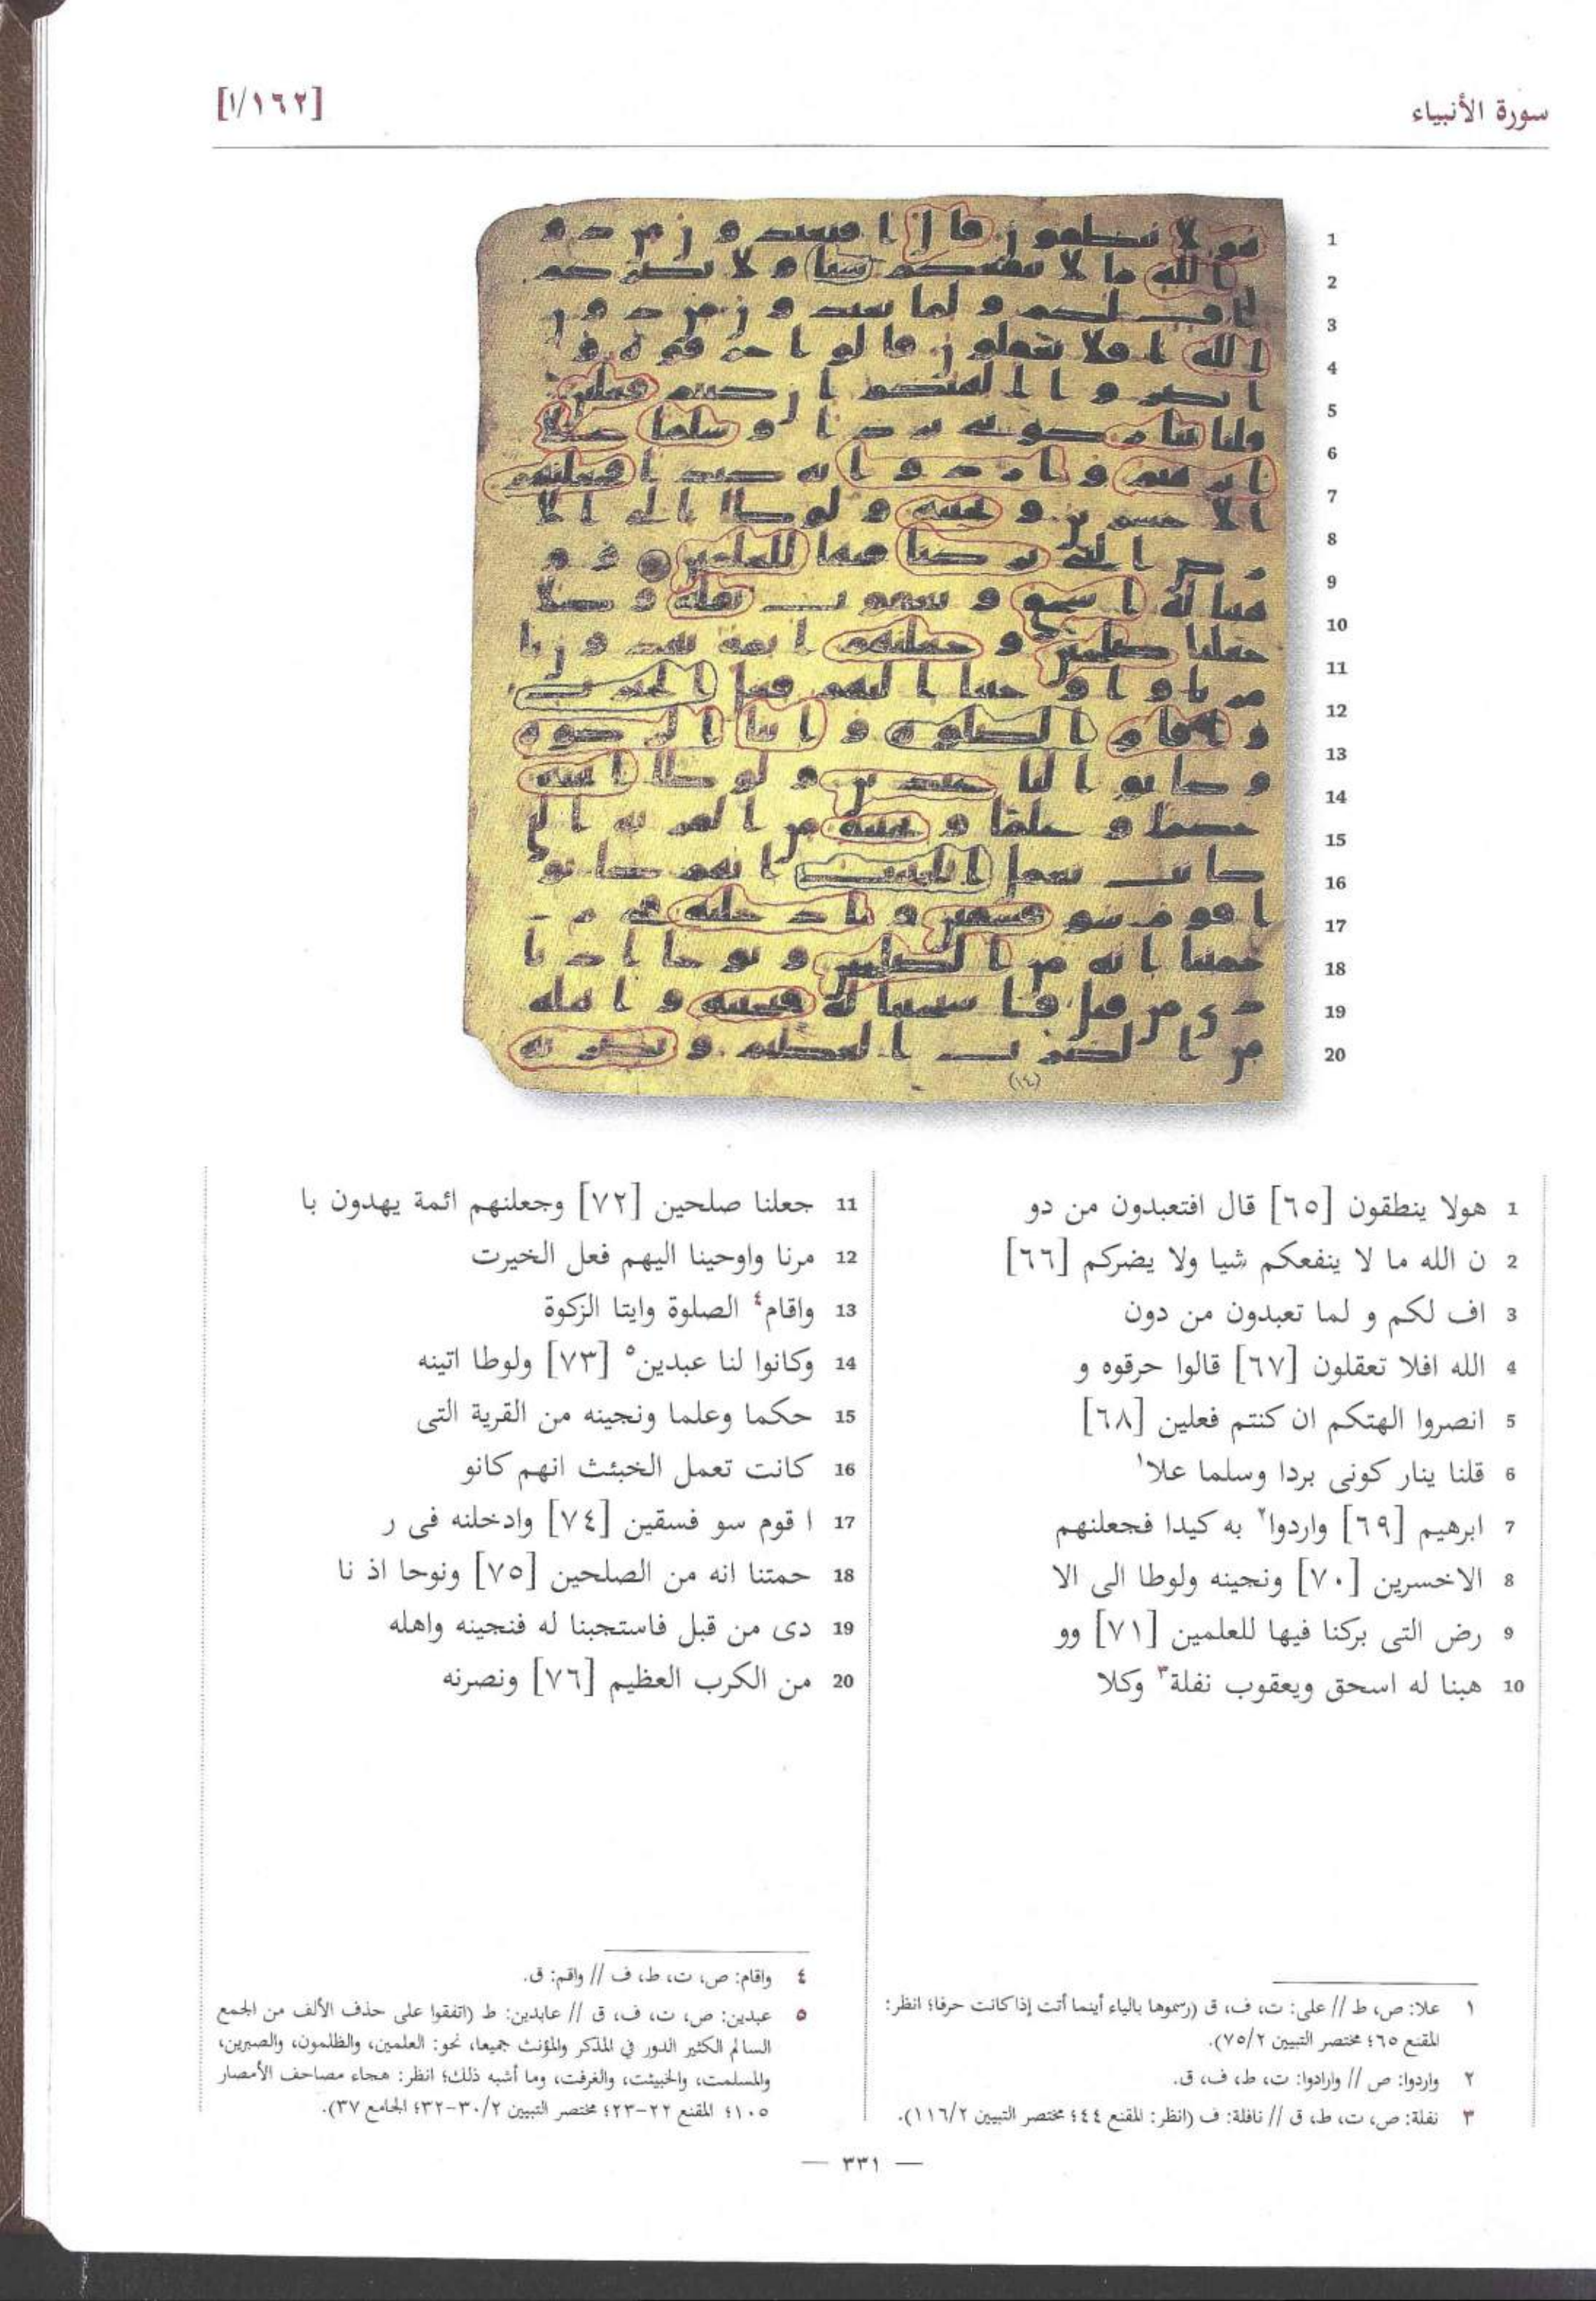 سورة الأنبياء
[١/١٦٢]
1 هولا ينطقون [٦٥] قال افتعبدون من دو
2 ن الله ما لا ينفعكم شيا ولا يضركم [٦٦]
3 اف لكم و لما تعبدون من دون
4 الله افلا تعقلون [٦٧] قالوا حرقوه و
5 انصروا الهتكم ان كنتم فعلين [٦٨]
6 قلنا ينار كونى بردا وسلما علا١
7 ابرهيم [٦٩] واردوا٢ به كيدا فجعلنهم
8 الاخسرين [٧٠] ونجينه ولوطا الى الا
9 رض التى بركنا فيها للعلمين [٧١] وو
10 هبنا له اسحق ويعقوب نفلة٣ وكلا
11 جعلنا صلحين [٧٢] وجعلنهم ائمة يهدون با
12 مرنا واوحينا اليهم فعل الخيرت
13 واقام٤ الصلوة وايتا الزكوة
14 وكانوا لنا عبدين٥ [٧٣] ولوطا اتينه
15 حكما وعلما ونجينه من القرية التى
16 كانت تعمل الخبئث انهم كانو
17 ا قوم سو فسقين [٧٤] وادخلنه فى ر
18 حمتنا انه من الصلحين [٧٥] ونوحا اذ نا
19 دى من قبل فاستجبنا له فنجينه واهله
20 من الكرب العظيم [٧٦] ونصرنه
١ علا: ص، ط // على: ت، ف، ق (رسموها بالياء أينما أتت إذا كانت حرفا؛ انظر:
المقنع ٦٥؛ مختصر التبيين ٧٥/٢).
٢ واردوا: ص // وارادوا: ت، ط، ف، ق.
٣ نفلة: ص، ت، ط، ق // نافلة: ف (انظر: المقنع ٤٤؛ مختصر التبيين ١١٦/٢).
٤ واقام: ص، ت، ط، ف // واقم: ق.
٥ عبدين: ص، ت، ف، ق // عابدين: ط (اتفقوا على حذف الألف من الجمع
السالم الكثير الدور في المذكر والمؤنث جميعا، نحو: العلمين، والظلمون، والصبرين،
والمسلمت، والخبيثت، والغرفت، وما أشبه ذلك؛ انظر: هجاء مصاحف الأمصار
١٠٥؛ المقنع ٢٢-٢٣؛ مختصر التبيين ٣٠/٢-٣٢؛ الجامع ٣٧).
— ٣٣١ —